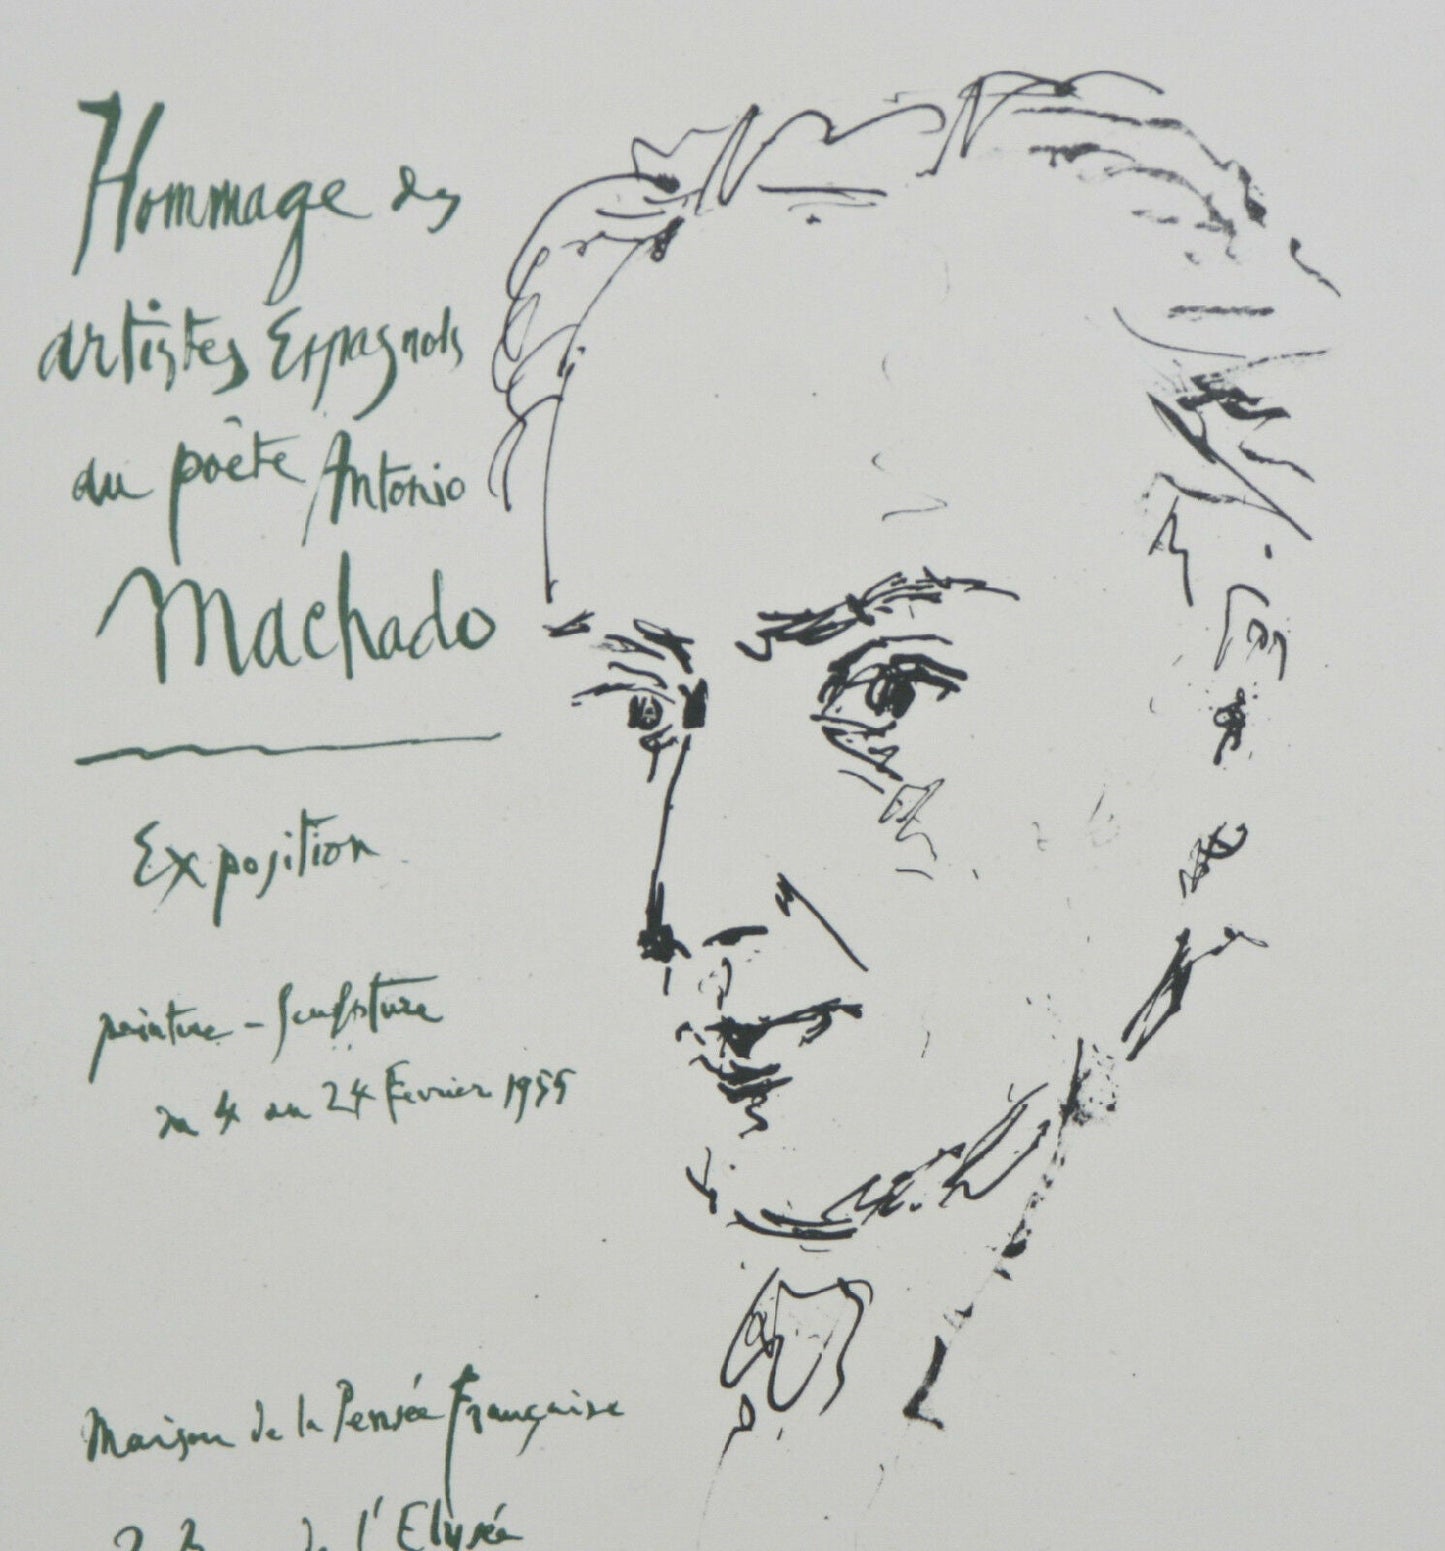 Hommage des
artistes Espagnols
au poète Antonio
Machado
Exposition
peinture - Sculpture
du 4 au 24 Fevrier 1955
Maison de la Pensée Française
2 de l'Elysée